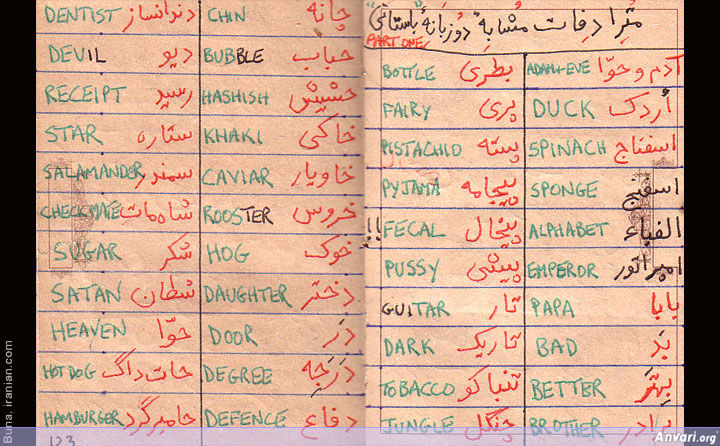 DENTIST دندانساز CHIN چانه
DEVIL دیو BUBBLE حباب
RECEIPT رسید HASHISH حشیش
STAR ستاره KHAKI خاکی
SALAMANDER سمندر CAVIAR خاویار
CHECKMATE شاه مات ROOSTER خروس
SUGAR شکر HOG خوک
SATAN شطان DAUGHTER دختر
HEAVEN حوّا DOOR دَر
HOT DOG حات داگ DEGREE دَرَجه
HAMBURGER حامبرگرد DEFENCE دفاع
123
مترادفات مشابهٔ دوزبانهٔ "باستانی"
PART ONE
BOTTLE بطری ADAM+EVE آدم و حوّا
FAIRY پری DUCK اُردک
PISTACHIO پسته SPINACH اسفناج
PYJAMA پیجامه SPONGE اسفنج
!!! FECAL پیخال ALPHABET الفباء
PUSSY پیشی EMPEROR امپراتور
GUITAR تار PAPA بابا
DARK تاریک BAD بَد
TOBACCO تنباکو BETTER بهتَر
JUNGLE جنگل BROTHER برادر
Buna, iranian.com
Anvari.org